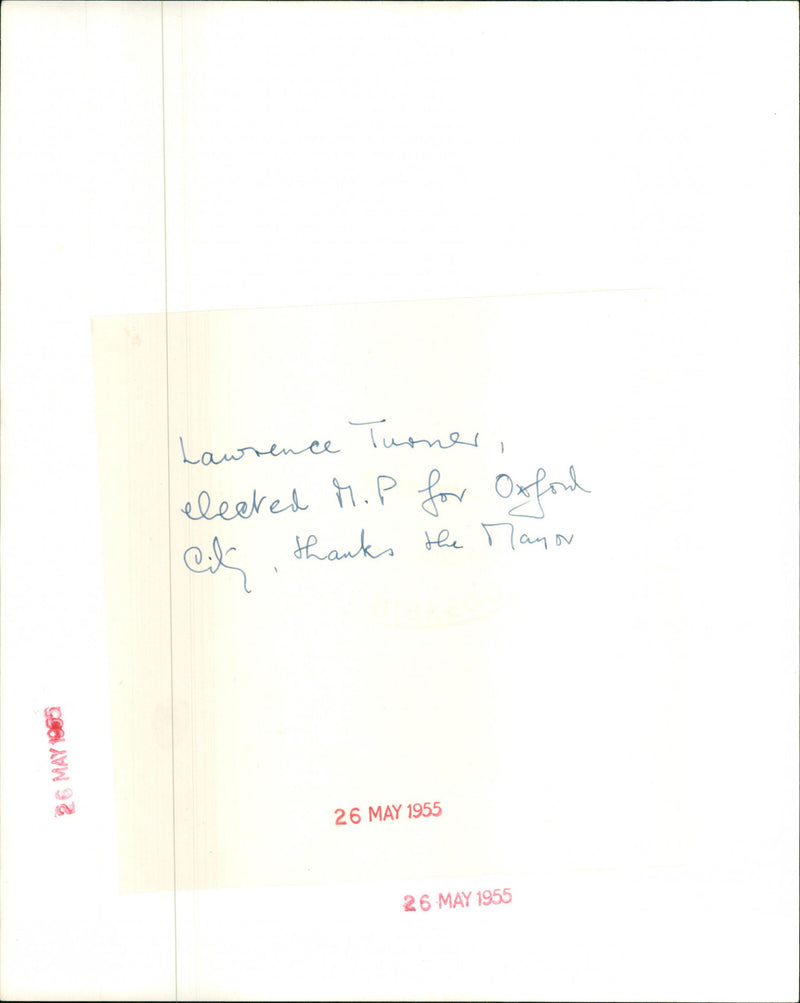 Lawrence Turner,
elected M.P for Oxford
City, thanks the Mayor
26 MAY 1955
26 MAY 1955
26 MAY 1955